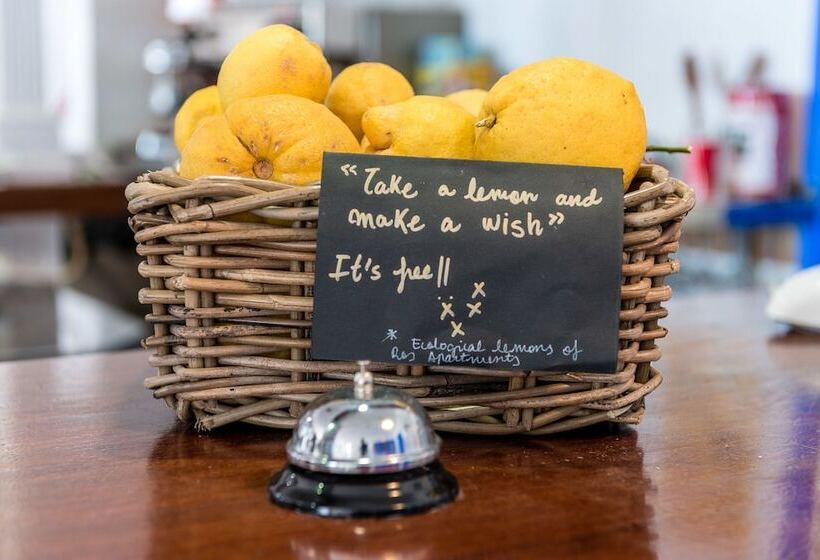 “Take a lemon and
make a wish”
It's free!!
* Ecological lemons of
Ros Apartments